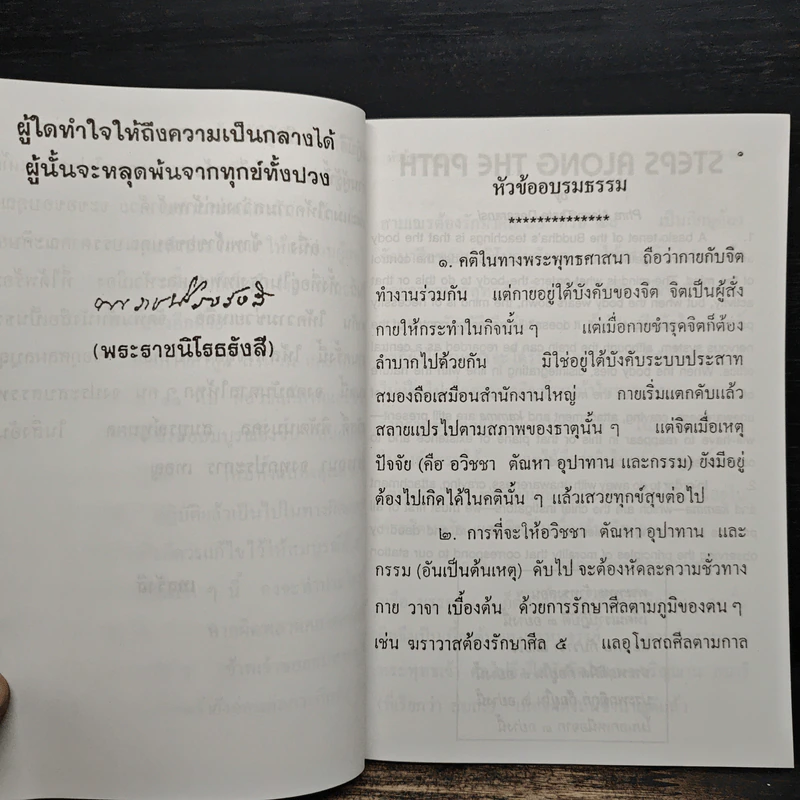 ผู้ใดทำใจให้ถึงความเป็นกลางได้
ผู้นั้นจะหลุดพ้นจากทุกข์ทั้งปวง
(พระราชนิโรธรังสี)
๑
หัวข้ออบรมธรรม
**************
๑. คติในทางพระพุทธศาสนา ถือว่ากายกับจิต
ทำงานร่วมกัน แต่กายอยู่ใต้บังคับของจิต จิตเป็นผู้สั่ง
กายให้กระทำในกิจนั้น ๆ แต่เมื่อกายชำรุดจิตก็ต้อง
ลำบากไปด้วยกัน มิใช่อยู่ใต้บังคับระบบประสาท
สมองถือเสมือนสำนักงานใหญ่ กายเริ่มแตกดับแล้ว
สลายแปรไปตามสภาพของธาตุนั้น ๆ แต่จิตเมื่อเหตุ
ปัจจัย (คือ อวิชชา ตัณหา อุปาทาน และกรรม) ยังมีอยู่
ต้องไปเกิดได้ในคตินั้น ๆ แล้วเสวยทุกข์สุขต่อไป
๒. การที่จะให้อวิชชา ตัณหา อุปาทาน และ
กรรม (อันเป็นต้นเหตุ) ดับไป จะต้องหัดละความชั่วทาง
กาย วาจา เบื้องต้น ด้วยการรักษาศีลตามภูมิของตน ๆ
เช่น ฆราวาสต้องรักษาศีล ๕ แลอุโบสถศีลตามกาล